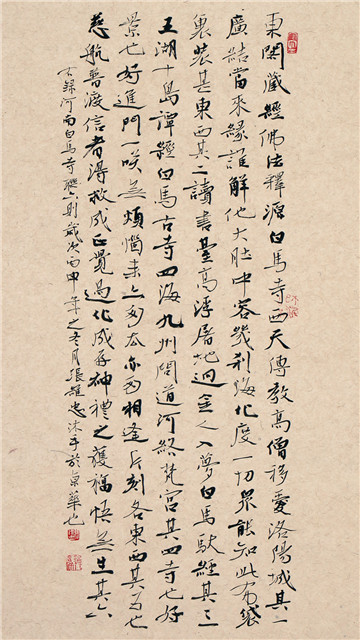 東閣藏經佛法釋源白馬寺西天傳教高僧移愛洛陽城其一
廣結當來緣誰解他大肚中容幾剎海化度一切眾能知此布袋
裏裝甚東西其二讀書臺高浮屠地迥金人入夢白馬馱經其三
五湖十島譚經白馬古寺四海九州問道河洛梵宮其四寺也好
景也好進門一咲無煩惱来亦匆去亦匆相逢片刻各東西其五也
慈航普渡信者得救成正覺過化成存神禮之獲福悟無生其六
右錄河南白馬寺聯六則歲次丙申年之冬月張忠沐手於京華也